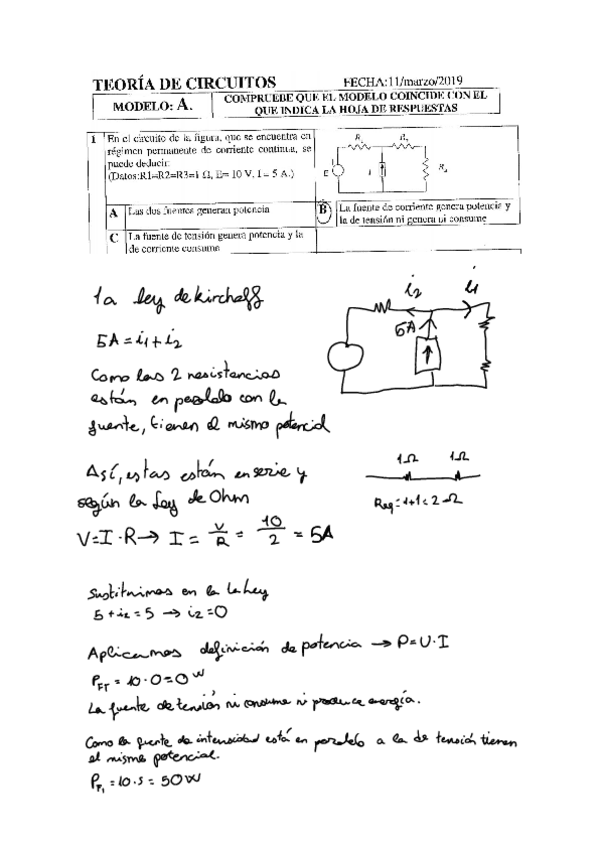 TEORÍA DE CIRCUITOS
FECHA:11/marzo/2019
MODELO: A.
COMPRUEBE QUE EL MODELO COINCIDE CON EL
QUE INDICA LA HOJA DE RESPUESTAS
1 En el circuito de la figura, que se encuentra en
régimen permanente de corriente continua, se
puede deducir:
(Datos:R1=R2=R3=1 Ω, E= 10 V, I = 5 A.)
E
A Las dos fuentes generan potencia
B La fuente de corriente genera potencia y
la de tensión ni genera ni consume
C La fuente de tensión genera potencia y la
de corriente consume
1a ley de kirchoff
5A = i1 + i2
i2 i1
5A
Como las 2 resistencias
están en paralelo con la
fuente, tienen el mismo potencial
Así, estas están en serie y
según la Ley de Ohm
V=I·R→ I = V/R = 10/2 = 5A
1Ω 1Ω
Req = 1+1 = 2 Ω
Sustituimos en la 1a ley
5 + i2 = 5 → i2 = 0
Aplicamos definición de potencia → P = U·I
PFT = 10·0 = 0 W
La fuente de tensión ni consume ni produce energía.
Como la fuente de intensidad está en paralelo a la de tensión tienen
el mismo potencial.
= 10·5 = 50 W